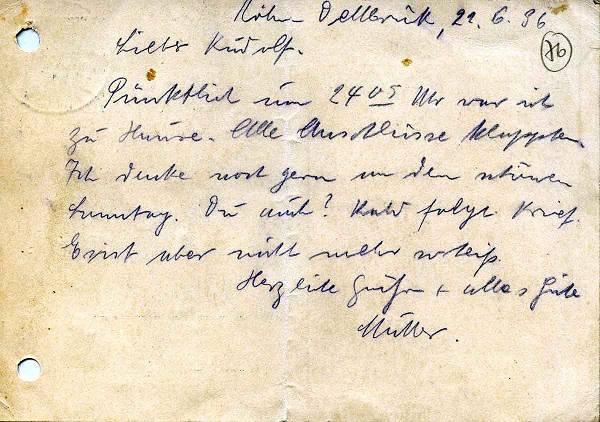 Köln-Dellbrück, 22. 6. 36
76
Lieber Rudolf.
Pünktlich um 24 05 Uhr war ich
zu Hause. Alle Anschlüsse klappten.
Ich denke noch gern an den schönen
Sonntag. Du auch? Bald folgt Brief.
aber nicht mehr
Herzliche Grüße + alles Gute
Mutter.